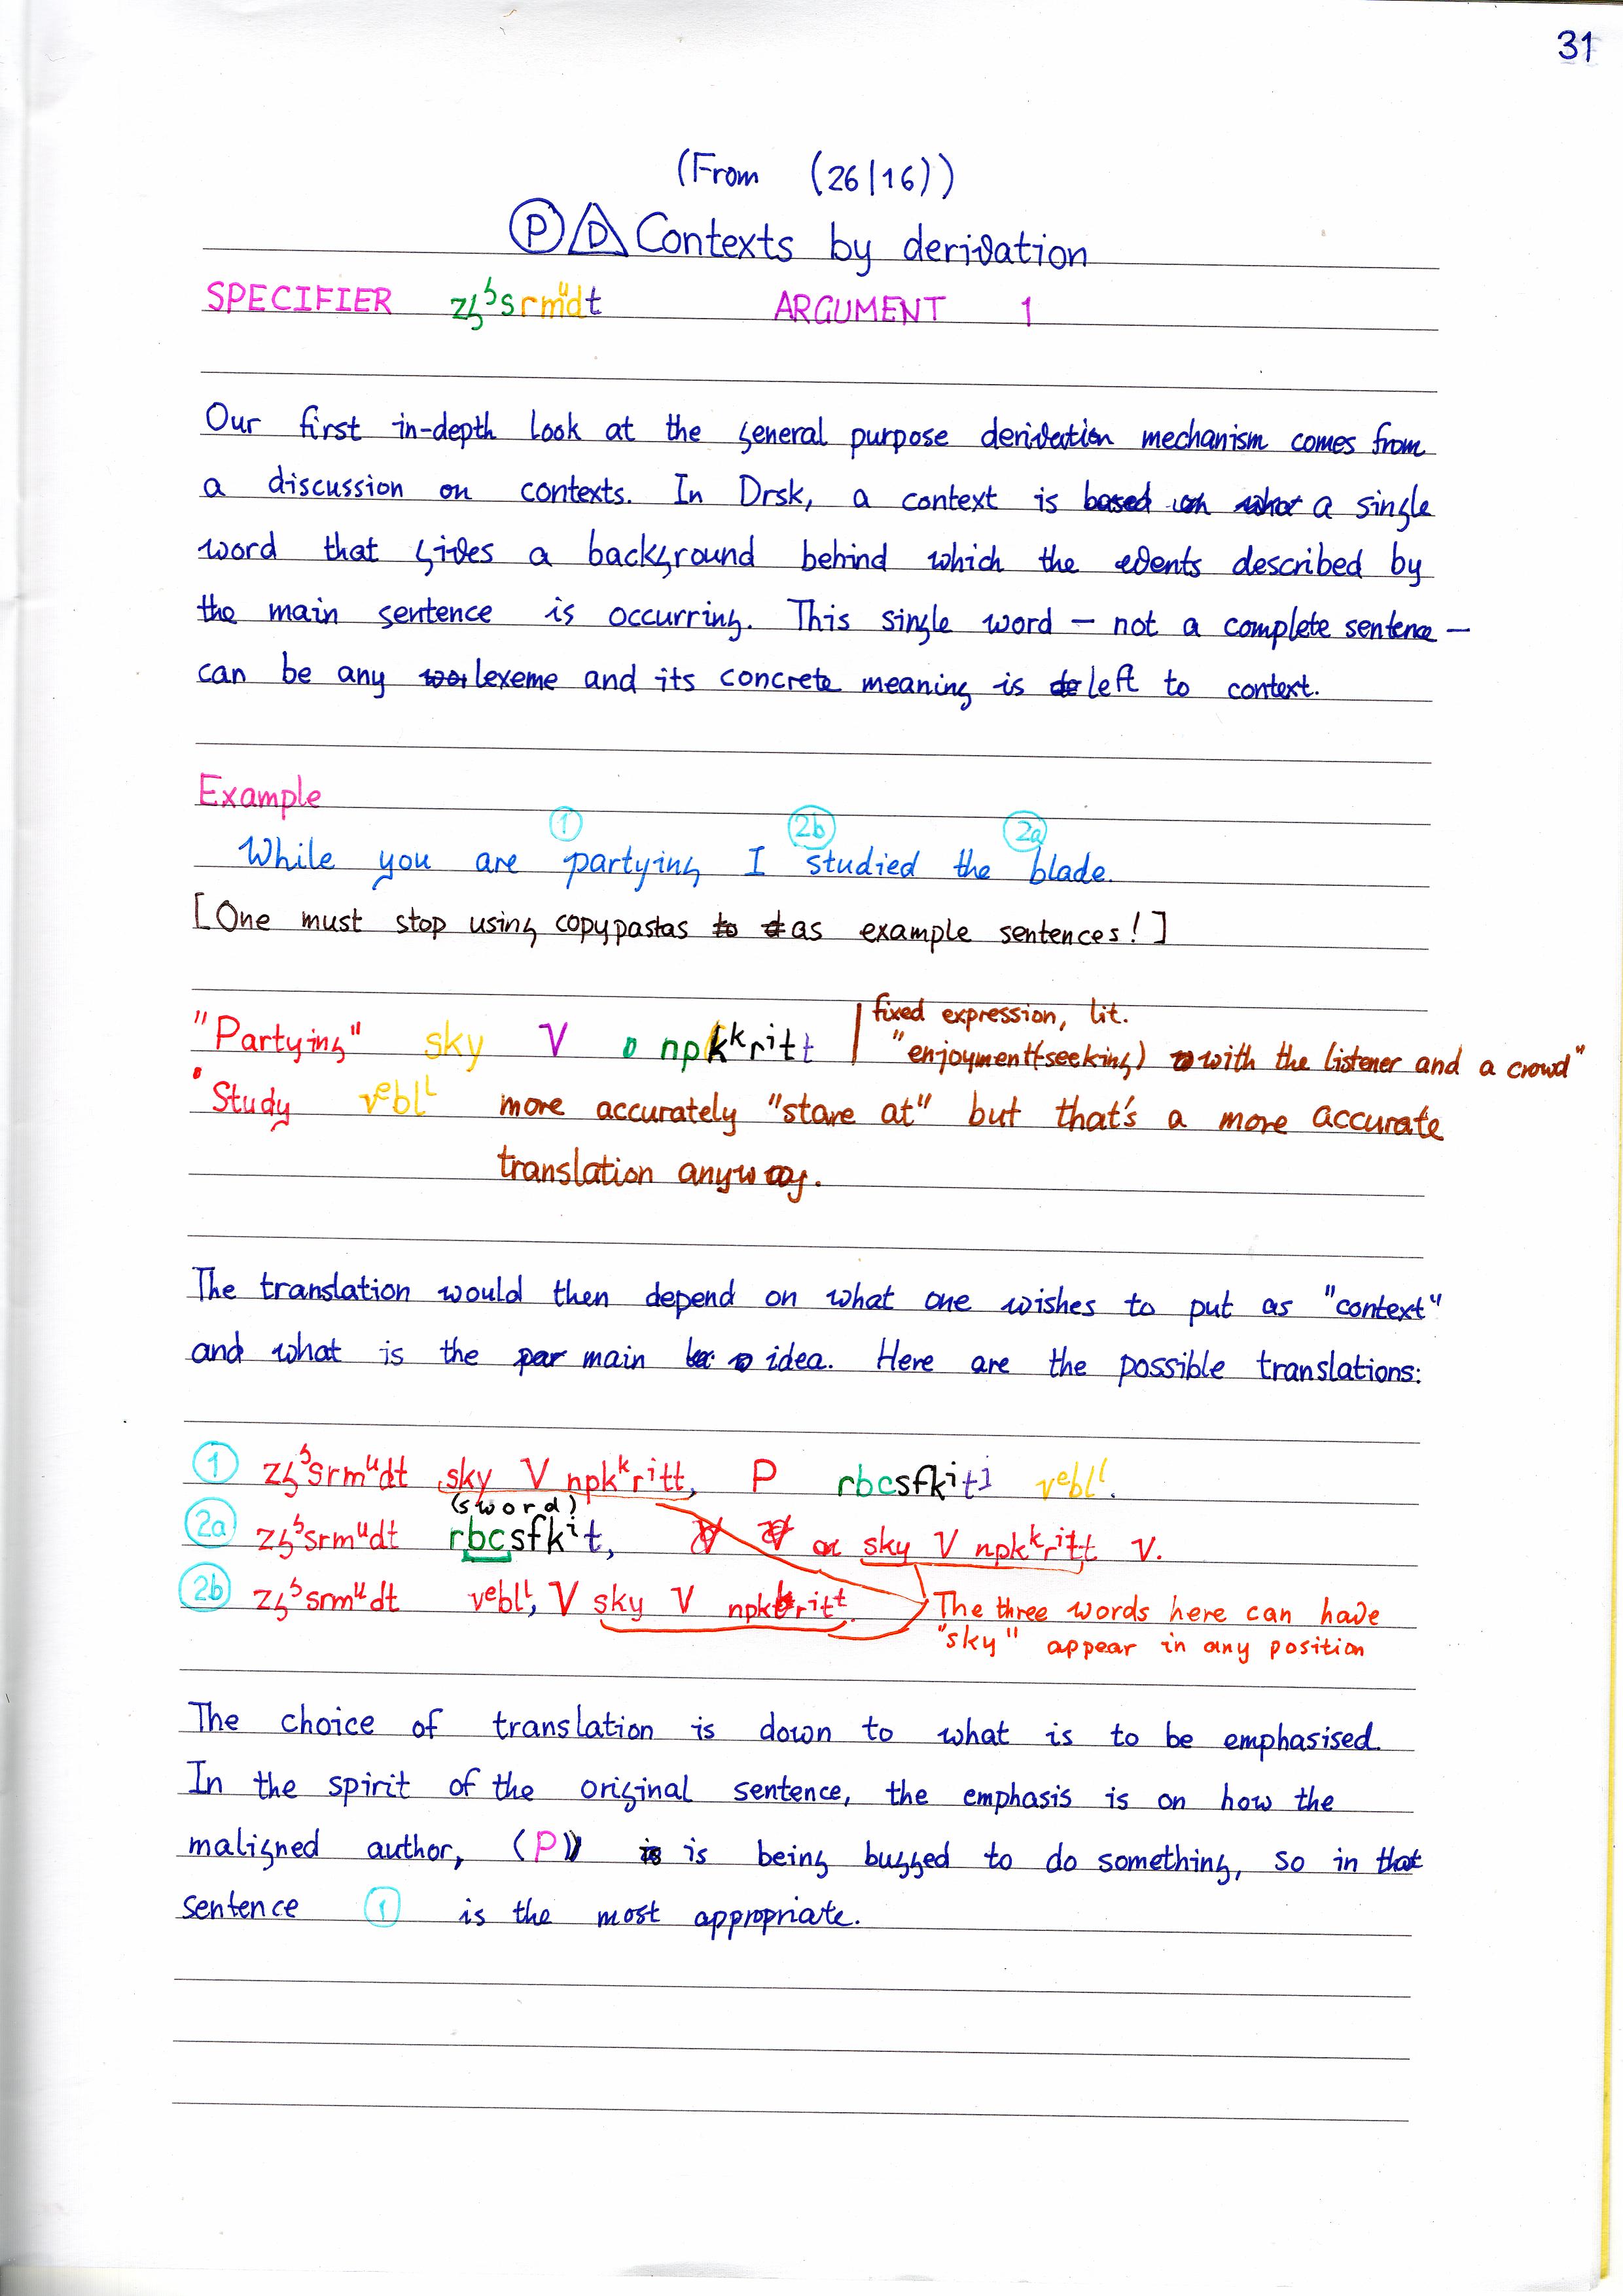 31
(From (26|16))
Ⓟ D Contexts by derivation
SPECIFIER zꜧ^ꜧsrm^udt ARGUMENT 1
Our first in-depth look at the general purpose derivation mechanism comes from
a discussion on contexts. In Drsk, a context is a single
word that gives a background behind which the events described by
the main sentence is occurring. This single word – not a complete sentence –
can be any lexeme and its concrete meaning is left to context.
Example
① ②b ②a
While you are partying I studied the blade.
[One must stop using copypastas as example sentences!]
fixed expression, lit.
"Partying" sky V npk^kritt "enjoyment(seeking) with the listener and a crowd"
Study v^ebl^l more accurately "stare at" but that's a more accurate
translation anyway.
The translation would then depend on what one wishes to put as "context"
and what is the main idea. Here are the possible translations:
① zꜧ^ꜧsrm^udt sky V npk^kritt, P rbcsfkit v^ebl^l.
(sword)
②a zꜧ^ꜧsrm^udt rbcsfk^it, sky V npk^kritt V.
②b zꜧ^ꜧsrm^udt v^ebl^l, V sky V npkkritt. The three words here can have
"sky" appear in any position
The choice of translation is down to what is to be emphasised.
In the spirit of the original sentence, the emphasis is on how the
maligned author, (P) is being bugged to do something, so in that
sentence ① is the most appropriate.